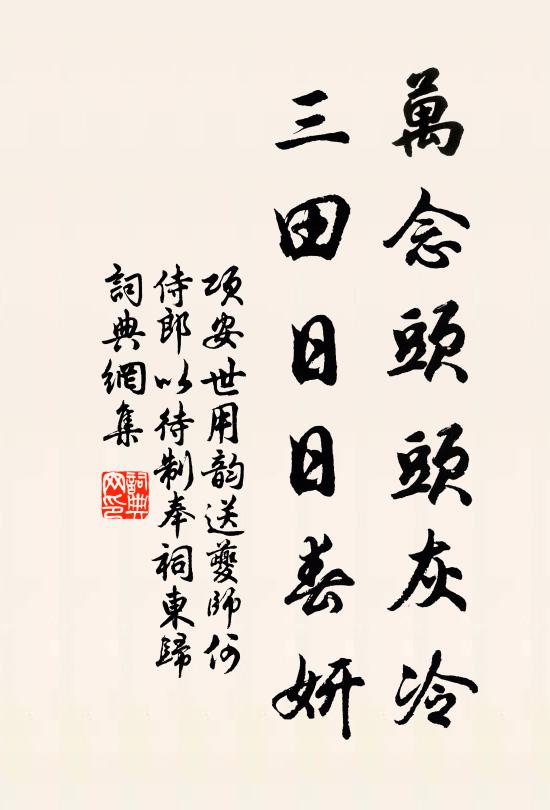 萬念頭頭灰冷
三田日日春妍
項安世用韵送夔師何
侍郎以待制奉祠東歸
詞典網集
詞典
網印